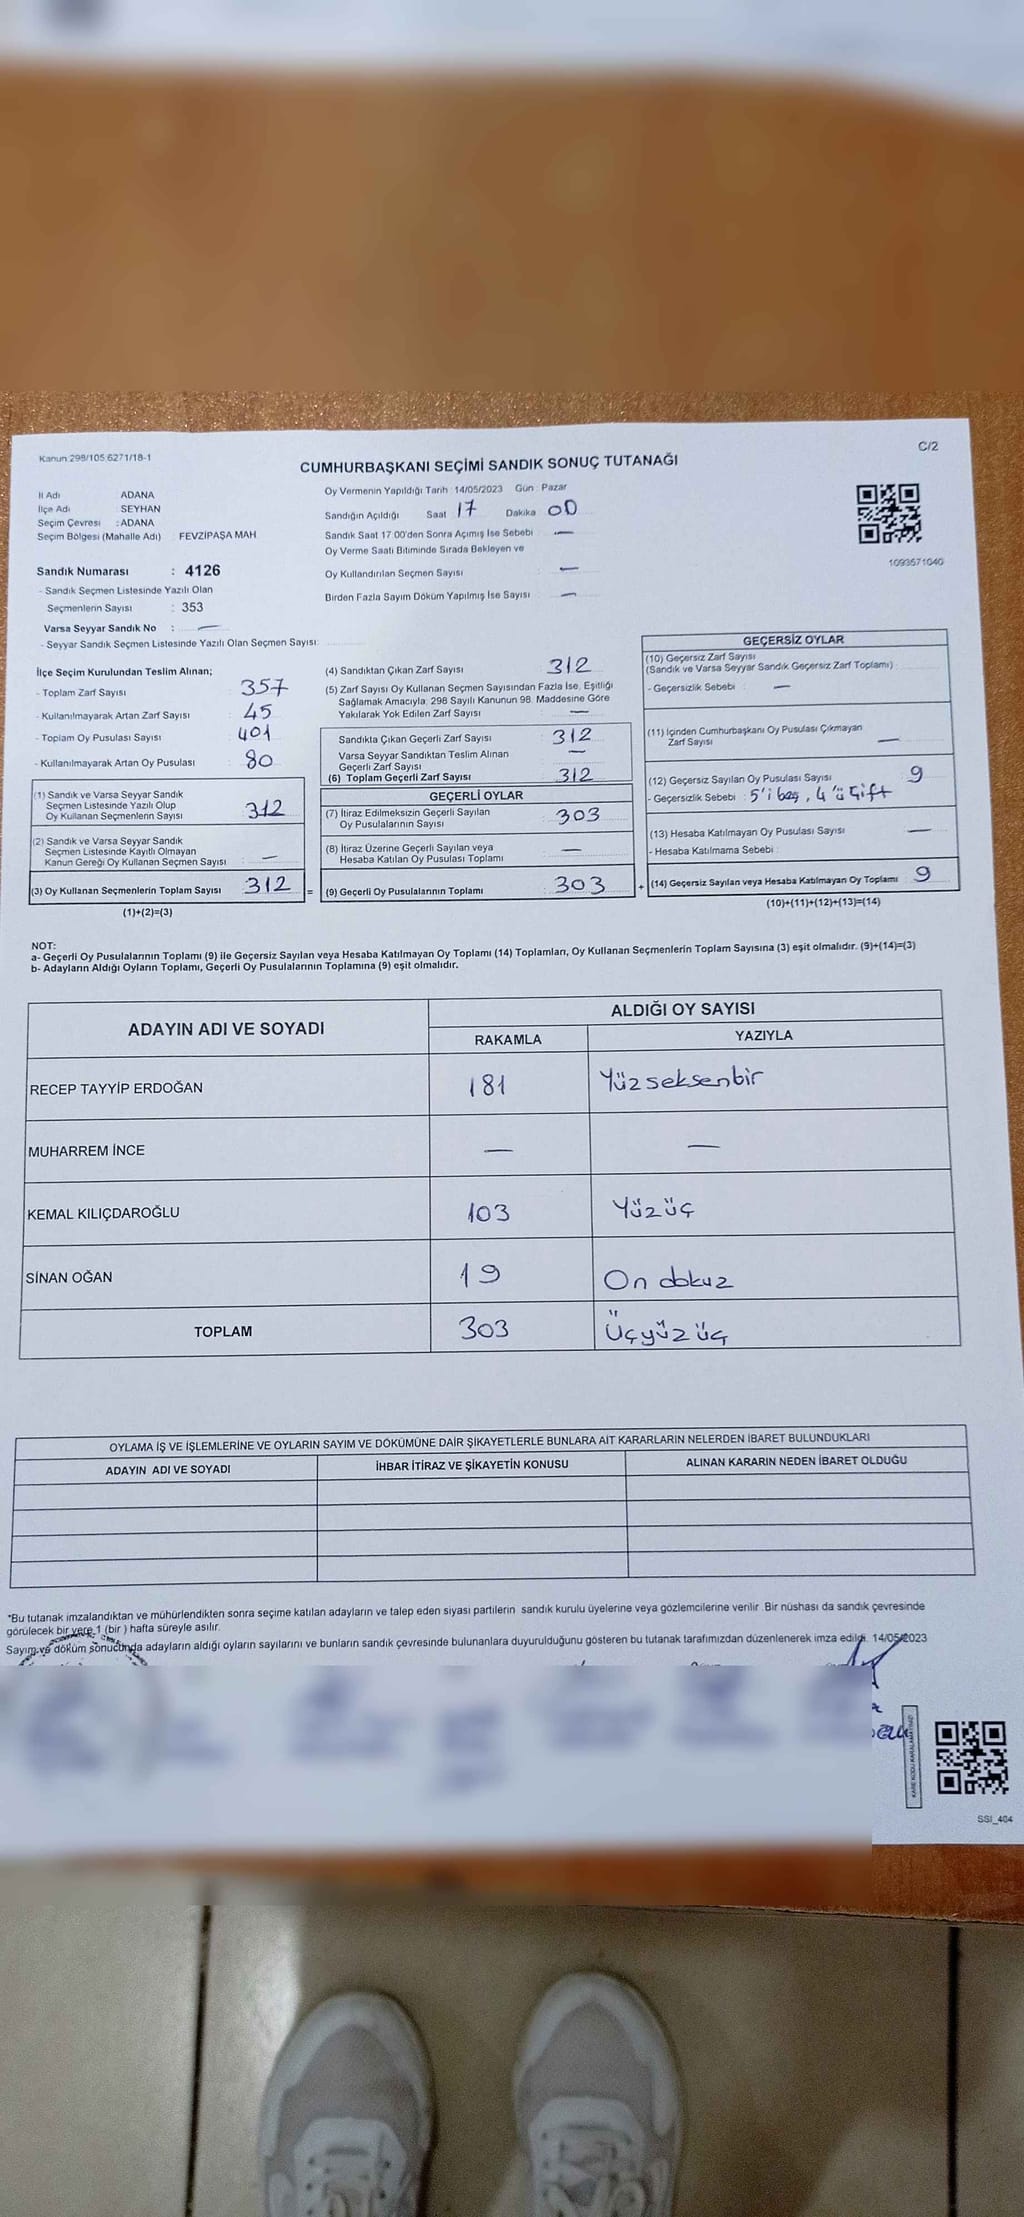 Kanun:298/105,6271/18-1
C/2
CUMHURBAŞKANI SEÇİMİ SANDIK SONUÇ TUTANAĞI
İl Adı ADANA
İlçe Adı : SEYHAN
Seçim Çevresi : ADANA
Seçim Bölgesi (Mahalle Adı) : FEVZİPAŞA MAH
Sandık Numarası : 4126
- Sandık Seçmen Listesinde Yazılı Olan
Seçmenlerin Sayısı : 353
Varsa Seyyar Sandık No : —
- Seyyar Sandık Seçmen Listesinde Yazılı Olan Seçmen Sayısı:
Oy Vermenin Yapıldığı Tarih : 14/05/2023 Gün : Pazar
Sandığın Açıldığı Saat 17 Dakika 00
Sandık Saat 17.00'den Sonra Açımış İse Sebebi —
Oy Verme Saati Bitiminde Sırada Bekleyen ve
Oy Kullandırılan Seçmen Sayısı —
Birden Fazla Sayım Döküm Yapılmış İse Sayısı —
1093571040
İlçe Seçim Kurulundan Teslim Alınan;
- Toplam Zarf Sayısı 357
- Kullanılmayarak Artan Zarf Sayısı 45
- Toplam Oy Pusulası Sayısı 401
- Kullanılmayarak Artan Oy Pusulası 80
(1) Sandık ve Varsa Seyyar Sandık
Seçmen Listesinde Yazılı Olup
Oy Kullanan Seçmenlerin Sayısı 312
(2) Sandık ve Varsa Seyyar Sandık
Seçmen Listesinde Kayıtlı Olmayan
Kanun Gereği Oy Kullanan Seçmen Sayısı —
(3) Oy Kullanan Seçmenlerin Toplam Sayısı 312 =
(1)+(2)=(3)
(4) Sandıktan Çıkan Zarf Sayısı 312
(5) Zarf Sayısı Oy Kullanan Seçmen Sayısından Fazla İse, Eşitliği
Sağlamak Amacıyla; 298 Sayılı Kanunun 98. Maddesine Göre
Yakılarak Yok Edilen Zarf Sayısı —
Sandıkla Çıkan Geçerli Zarf Sayısı 312
Varsa Seyyar Sandıktan Teslim Alınan
Geçerli Zarf Sayısı —
(6) Toplam Geçerli Zarf Sayısı 312
GEÇERLİ OYLAR
(7) İtiraz Edilmeksizin Geçerli Sayılan
Oy Pusulalarının Sayısı 303
(8) İtiraz Üzerine Geçerli Sayılan veya
Hesaba Katılan Oy Pusulası Toplamı —
(9) Geçerli Oy Pusulalarının Toplamı 303 +
GEÇERSİZ OYLAR
(10) Geçersiz Zarf Sayısı
(Sandık ve Varsa Seyyar Sandık Geçersiz Zarf Toplamı) :
- Geçersizlik Sebebi : —
(11) İçinden Cumhurbaşkanı Oy Pusulası Çıkmayan
Zarf Sayısı —
(12) Geçersiz Sayılan Oy Pusulası Sayısı 9
- Geçersizlik Sebebi : 5'i boş, 4'ü Çift
(13) Hesaba Katılmayan Oy Pusulası Sayısı —
- Hesaba Katılmama Sebebi :
(14) Geçersiz Sayılan veya Hesaba Katılmayan Oy Toplamı 9
(10)+(11)+(12)+(13)=(14)
NOT:
a- Geçerli Oy Pusulalarının Toplamı (9) ile Geçersiz Sayılan veya Hesaba Katılmayan Oy Toplamı (14) Toplamları, Oy Kullanan Seçmenlerin Toplam Sayısına (3) eşit olmalıdır. (9)+(14)=(3)
b- Adayların Aldığı Oyların Toplamı, Geçerli Oy Pusulalarının Toplamına (9) eşit olmalıdır.
ADAYIN ADI VE SOYADI ALDIĞI OY SAYISI
RAKAMLA YAZIYLA
RECEP TAYYİP ERDOĞAN 181 Yüzseksenbir
MUHARREM İNCE — —
KEMAL KILIÇDAROĞLU 103 Yüzüç
SİNAN OĞAN 19 On dokuz
TOPLAM 303 Üçyüzüç
OYLAMA İŞ VE İŞLEMLERİNE VE OYLARIN SAYIM VE DÖKÜMÜNE DAİR ŞİKAYETLERLE BUNLARA AİT KARARLARIN NELERDEN İBARET BULUNDUKLARI
ADAYIN ADI VE SOYADI İHBAR İTİRAZ VE ŞİKAYETİN KONUSU ALINAN KARARIN NEDEN İBARET OLDUĞU
*Bu tutanak imzalandıktan ve mühürlendikten sonra seçime katılan adayların ve talep eden siyasi partilerin sandık kurulu üyelerine veya gözlemcilerine verilir. Bir nüshası da sandık çevresinde
görülecek bir yere 1 (bir) hafta süreyle asılır.
Sayım ve döküm sonucunda adayların aldığı oyların sayılarını ve bunların sandık çevresinde bulunanlara duyurulduğunu gösteren bu tutanak tarafımızdan düzenlenerek imza edildi. 14/05/2023
SSI_404